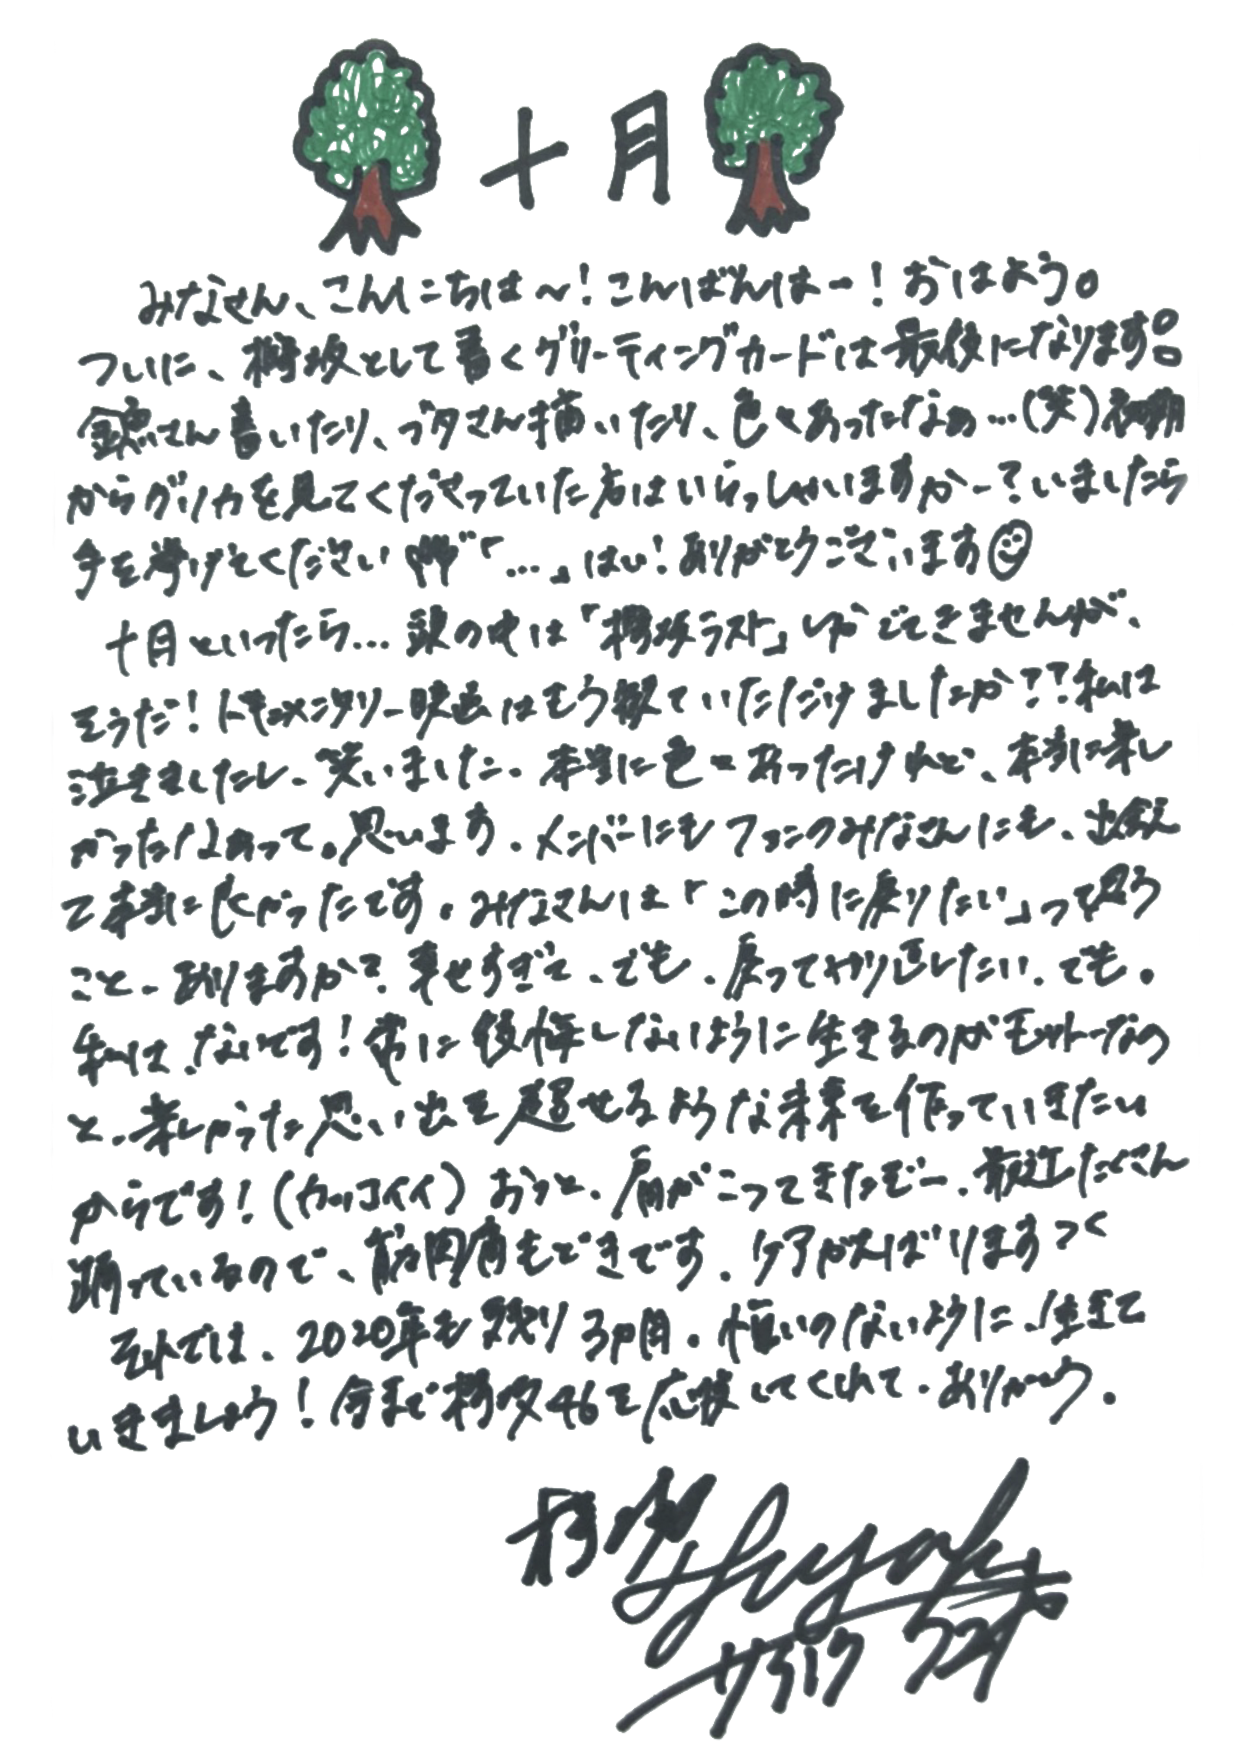 十月
みなさん、こんにちは〜！こんばんはー！おはよう。
ついに、欅坂として書くグリーティングカードは最後になります。
金魚さん書いたり、ブタさん描いたり、色々あったなぁ…(笑)初期
からグリカを見てくださっていた方はいらっしゃいますかー？いましたら
手を挙げてください「…」はい！ありがとうございます
十月といったら…頭の中は「欅坂ラスト」しかでてきませんが、
そうだ！ドキュメンタリー映画はもう観ていただけましたか？？私は
泣きましたし、笑いました。本当に色々あったけれど、本当に楽し
かったなぁって。思います。メンバーにもファンのみなさんにも、出会え
て本当に良かったです。みなさんは「この時に戻りたい」って思う
こと、ありますか？幸せすぎて、でも、戻ってやり直したい、でも。
私は、ないです！常に後悔しないように生きるのがモットーなの
と、楽しかった思い出を超せるような未来を作っていきたい
からです！(カッコイイ)おっと、肩がこってきたぞー、最近たくさん
踊っているので、筋肉痛もどきです。ケアがんばります
それでは、2020年も残り3ヶ月。悔いのないように、生きて
いきましょう！今まで欅坂46を応援してくれて、ありがとう。
欅坂